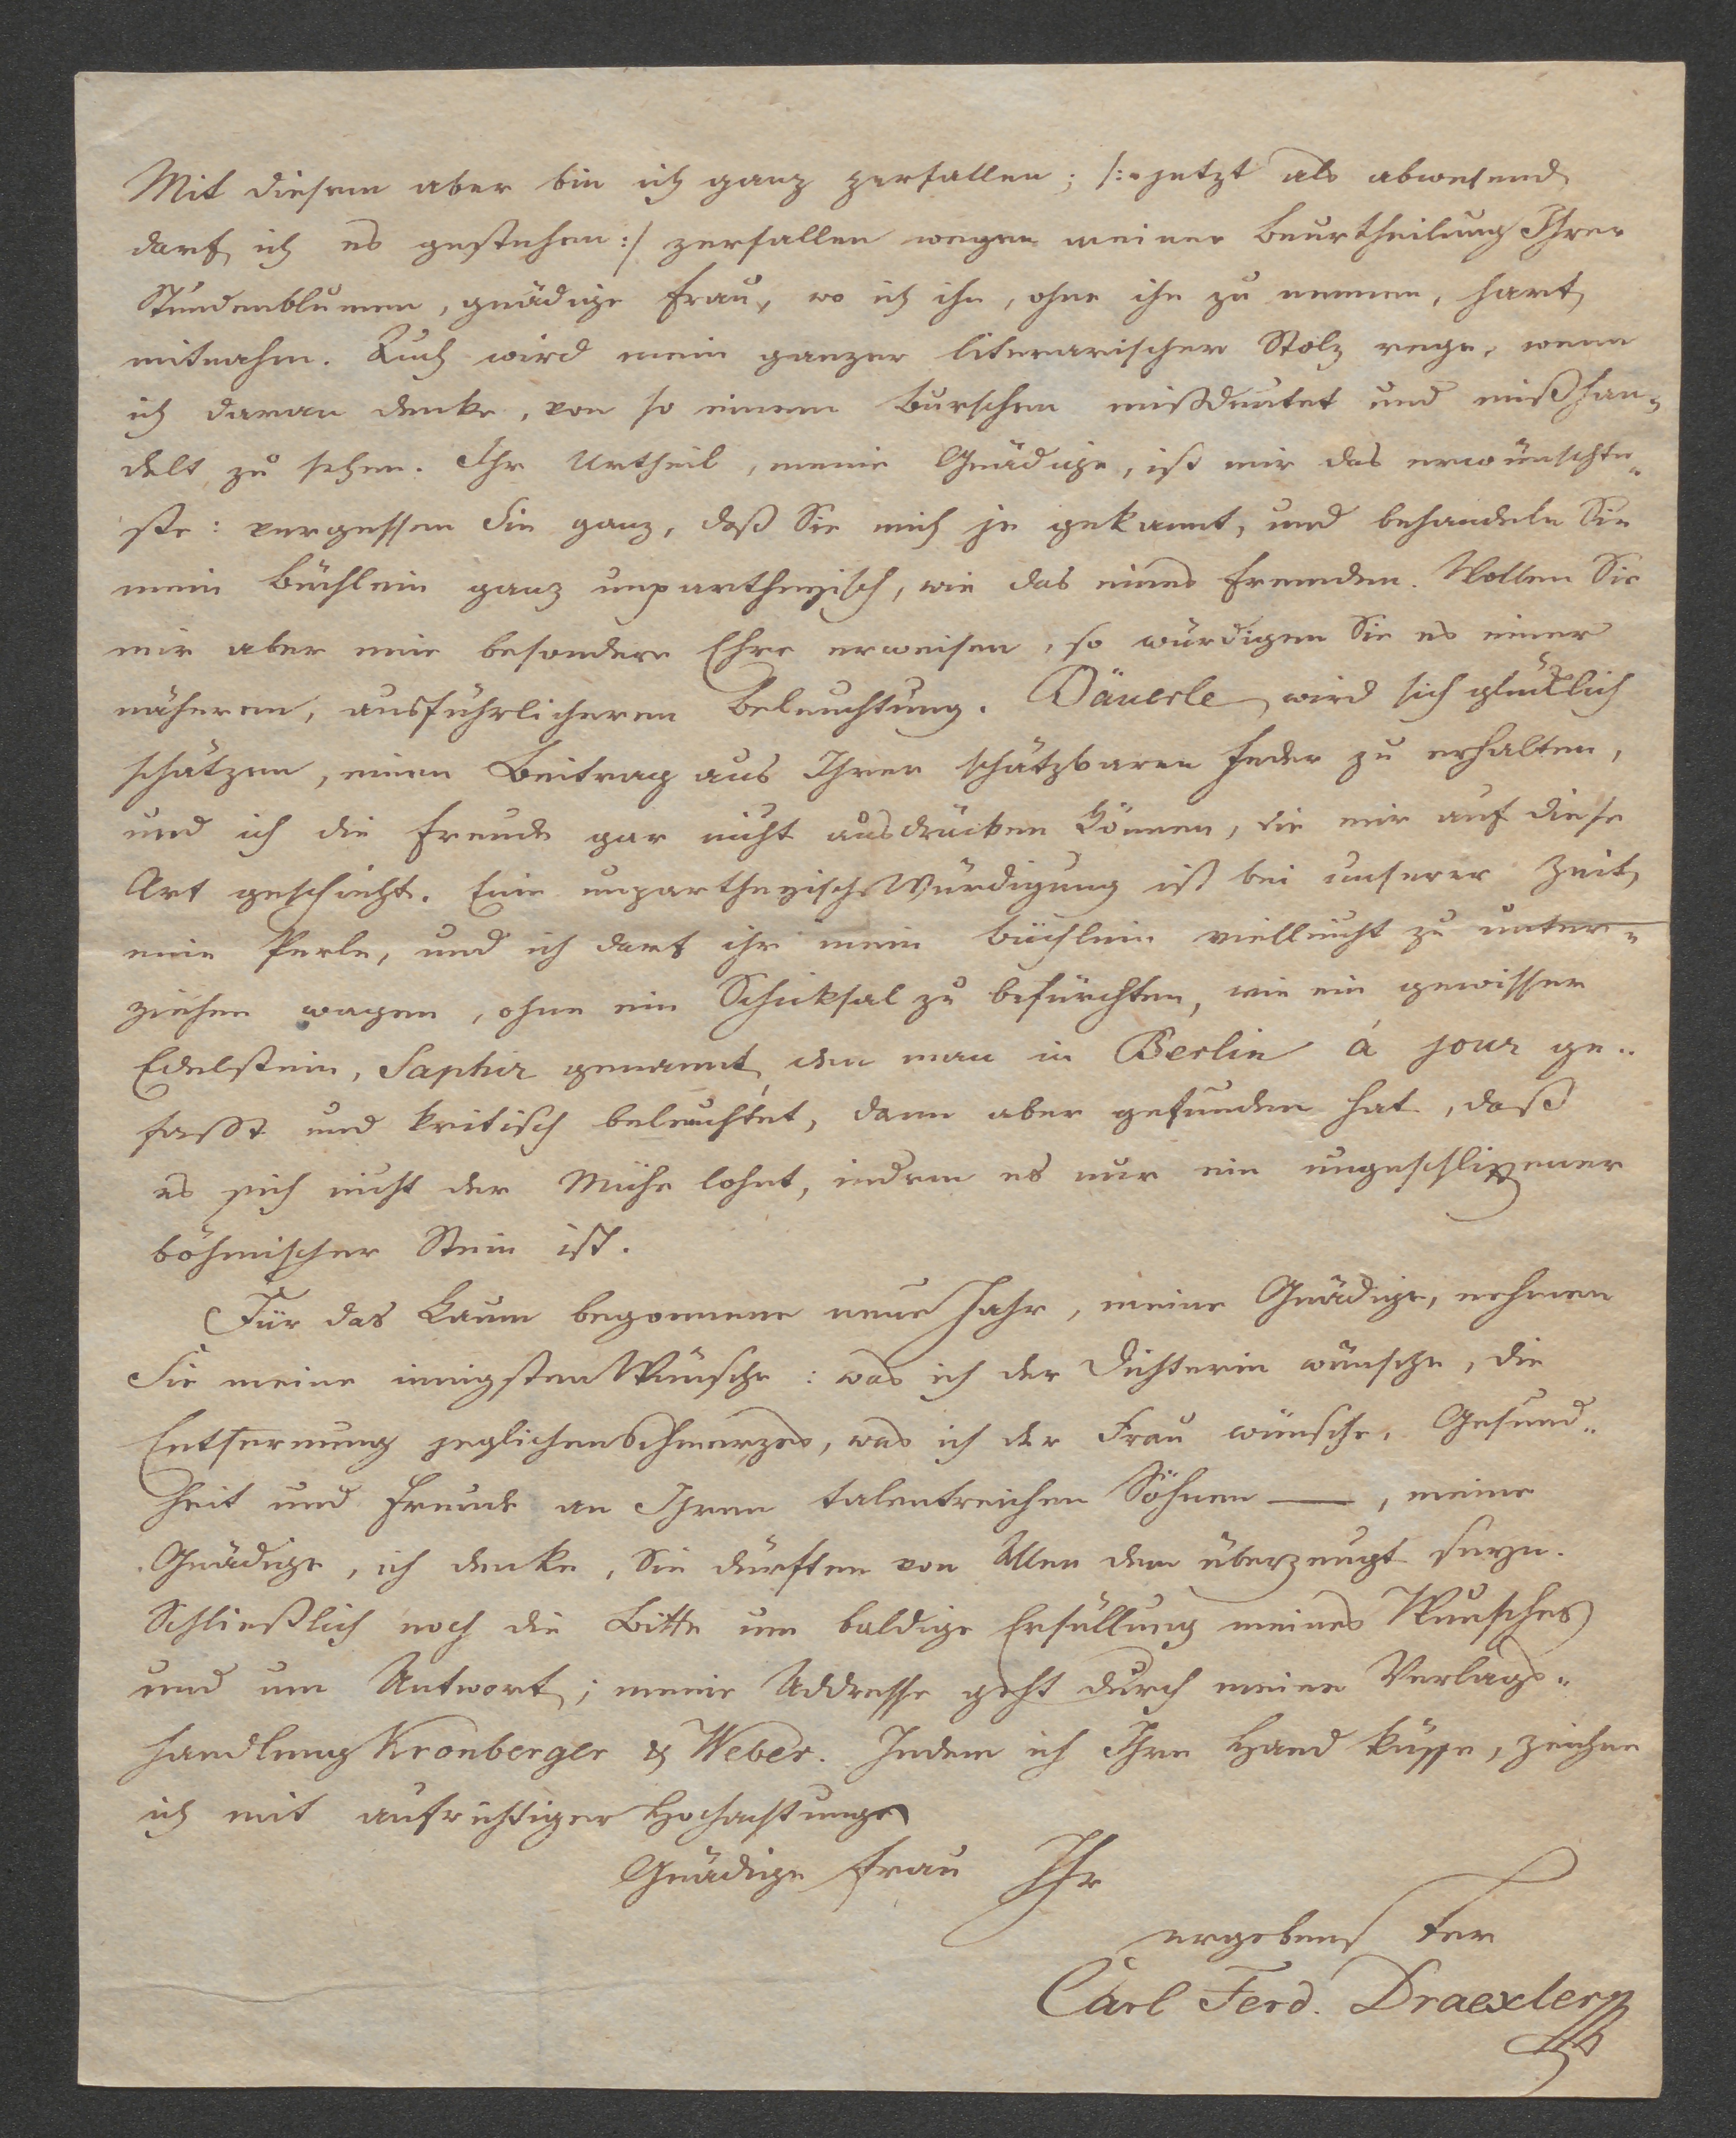 Mit diesem aber bin ich ganz zerfallen; /: jetzt als abwesend
darf ich es gestehen :/ zerfallen wegen meiner Beurtheilung Ihrer
Stundenblumen, gnädige Frau, wo ich ihn, ohne ihn zu nennen, hart
mitnahm. Auch wird mein ganzer literarischer Stolz rege, wenn
ich daran denke, von so einem Burschen mißdeutet und mißhan-
delt zu sehen. Ihr Urtheil, meine Gnädige, ist mir das erwünschte-
ste: vergessen Sie ganz, daß Sie mich je gekannt, und behandeln Sie
mein Büchlein ganz unpartheyisch, wie das eines Fremden. Wollen Sie
mir aber eine besondere Ehre erweisen, so würdigen Sie es einer
näheren, ausführlicheren Beleuchtung. Bäuerle wird sich glücklich
schätzen, einen Beitrag aus Ihrer schätzbaren Feder zu erhalten,
und ich die Freude gar nicht ausdrücken können, die mir auf diese
Art geschieht. Eine unpartheyische Würdigung ist bei unserer Zeit
eine Perle, und ich darf ihr mein Büchlein vielleicht zu unter-
ziehen wagen, ohne ein Schicksal zu befürchten, wie ein gewisser
Edelstein, Saphir genannt, den man in Berlin á jour ge-
faßt und kritisch beleuchtet, dann aber gefunden hat, daß
es sich nicht der Mühe lohnt, indem es nur ein ungeschliffener
böhmischer Stein ist.
Für das kaum begonnene neue Jahr, meine Gnädige, nehmen
Sie meine innigsten Wünsche: was ich der Dichterin wünsche, die
Entfernung jeglichen Schmerzes, was ich der Frau wünsche, Gesund-
heit und Freude an Ihren talentreichen Söhnen —, meine
Gnädige, ich denke, Sie dürften von Allen dem überzeugt seyn.
Schließlich noch die Bitte um baldige Erfüllung meines Wunsches
und um Antwort; meine Addresse geht durch meine Verlags-
handlung Kronberger & Weber. Indem ich Ihre Hand küsse, zeichne
ich mit aufrichtiger Hochachtung
Gnädige Frau Ihr
ergebenster
Carl Ferd. Draexler